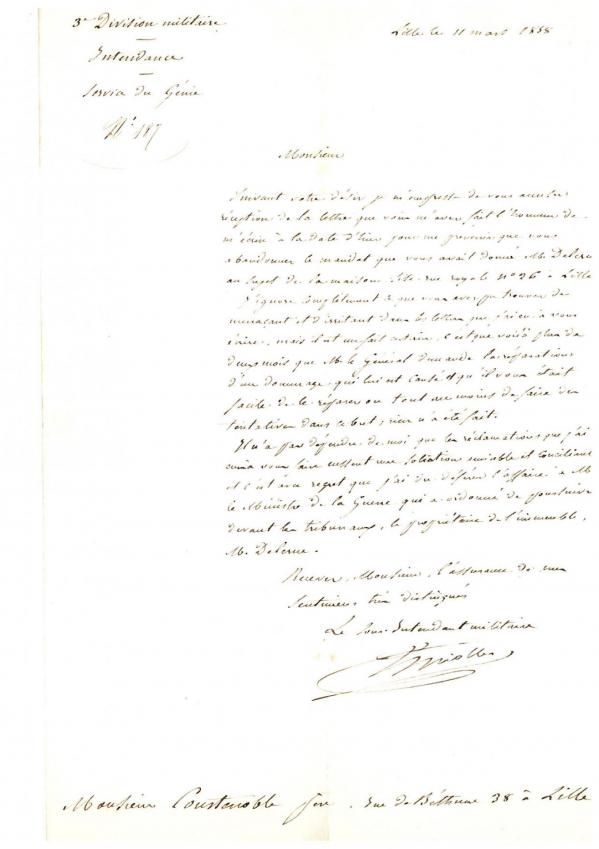 3e Division militaire
Intendance
Service du Génie
N° 187
Lille le 11 mars 1858
Monsieur
Suivant votre désir je m'empresse de vous accuser
réception de la lettre que vous m'avez fait l'honneur de
m'écrire à la date d'hier pour me prévenir que vous
abandonnez le mandat que vous avait donné M. Delerue
au sujet de la maison sise rue royale n° 26 à Lille
J'ignore complètement ce que vous avez pu trouver de
menaçant et d'irritant dans les lettres que j'ai eu à vous
écrire, mais il est un fait certain, c'est que voilà plus de
deux mois que M. le Général demande la réparation
d'un dommage qui lui est causé et qu'il vous était
facile de le réparer ou tout au moins de faire des
tentatives dans ce but ; rien n'a été fait.
Il n'a pas dépendu de moi que les réclamations que j'ai
eu à vous faire eussent une solution amiable et conciliante
et c'est à regret que j'ai dû déférer l'affaire à M.
le Ministre de la Guerre qui a ordonné de poursuivre
devant les tribunaux, le propriétaire de l'immeuble,
M. Delerue.
Recevez, Monsieur, l'assurance de mes
sentimens très distingués
Le Sous-Intendant militaire
Monsieur Constenoble père, rue de Béthune 38 à Lille